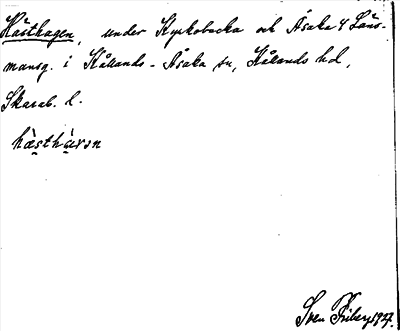 Hästhagen, under Kyrkobacka och Åsaka 4 Läns-
mansg. i Kållands-Åsaka sn, Kållands hd,
Skarab. l.
hästhàvɜn
Sven Friberg 1927.